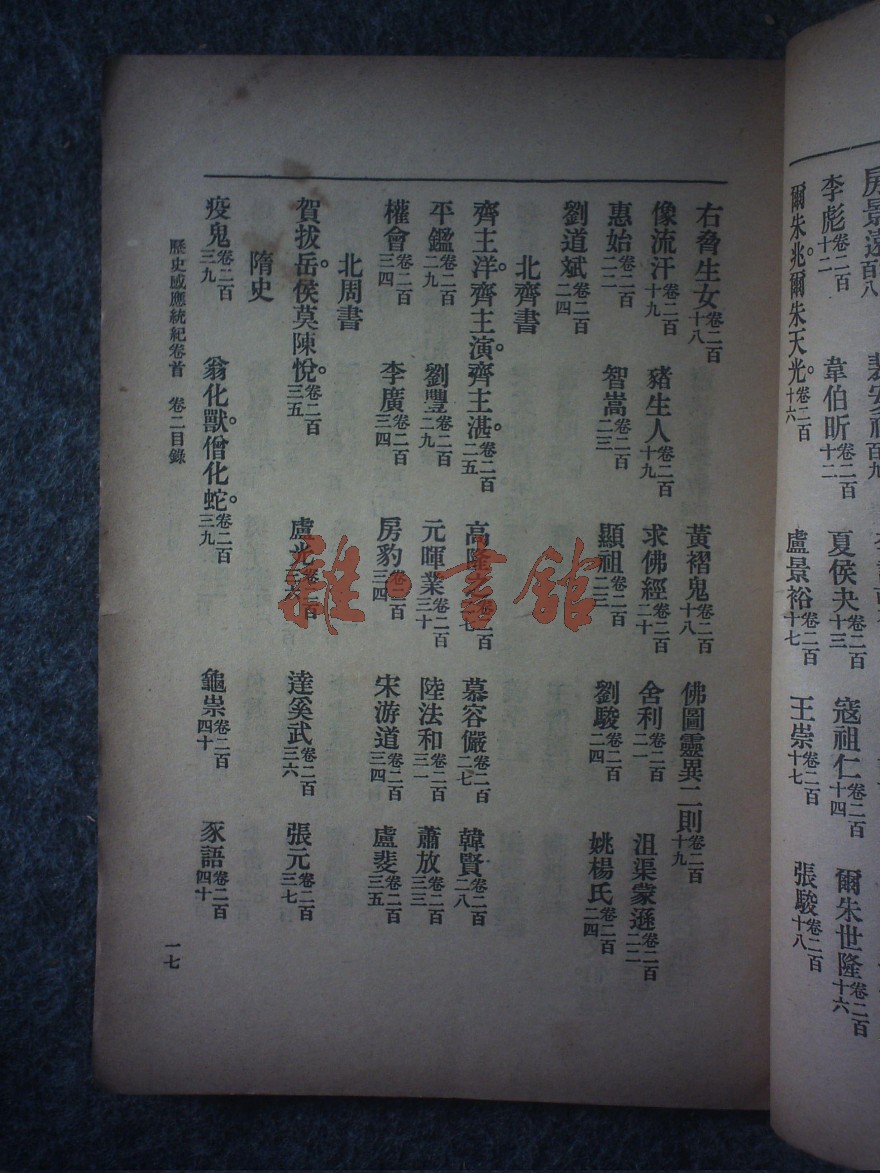 房景遠
李彪卷二百十二 韋伯昕卷二百十二 夏侯夬卷二百十三 寇祖仁卷二百十四 爾朱世隆卷二百十六
爾朱兆。爾朱天光。卷二百十六 盧景裕卷二百十七 王崇卷二百十七 張駿卷二百十八
右脅生女卷二百十八 黃褶鬼卷二百十八 佛圖靈異二則卷二百十九
像流汗卷二百十九 豬生人卷二百十九 求佛經卷二百二十 舍利卷二百二一 沮渠蒙遜卷二百二二
惠始卷二百二二 智嵩卷二百二三 顯祖卷二百二三 劉駿卷二百二四 姚楊氏卷二百二四
劉道斌卷二百二四
北齊書
齊主洋。齊主演。齊主湛。卷二百二五 高隆之卷二百二七 慕容儼卷二百二七 韓賢卷二百二八
平鑑卷二百二九 劉豐卷二百二九 元暉業卷二百三十 陸法和卷二百三一 蕭放卷二百三三
權會卷二百三四 李廣卷二百三四 房豹卷二百三四 宋游道卷二百三四 盧斐卷二百三五
北周書
賀拔岳。侯莫陳悅。卷二百三五 盧光 達奚武卷二百三六 張元卷二百三七
隋史
疫鬼卷二百三九 翁化獸。僧化蛇。卷二百三九 龜祟卷二百四十 豕語卷二百四十
歷史感應統紀卷首 卷二目錄 一七
雜·書館